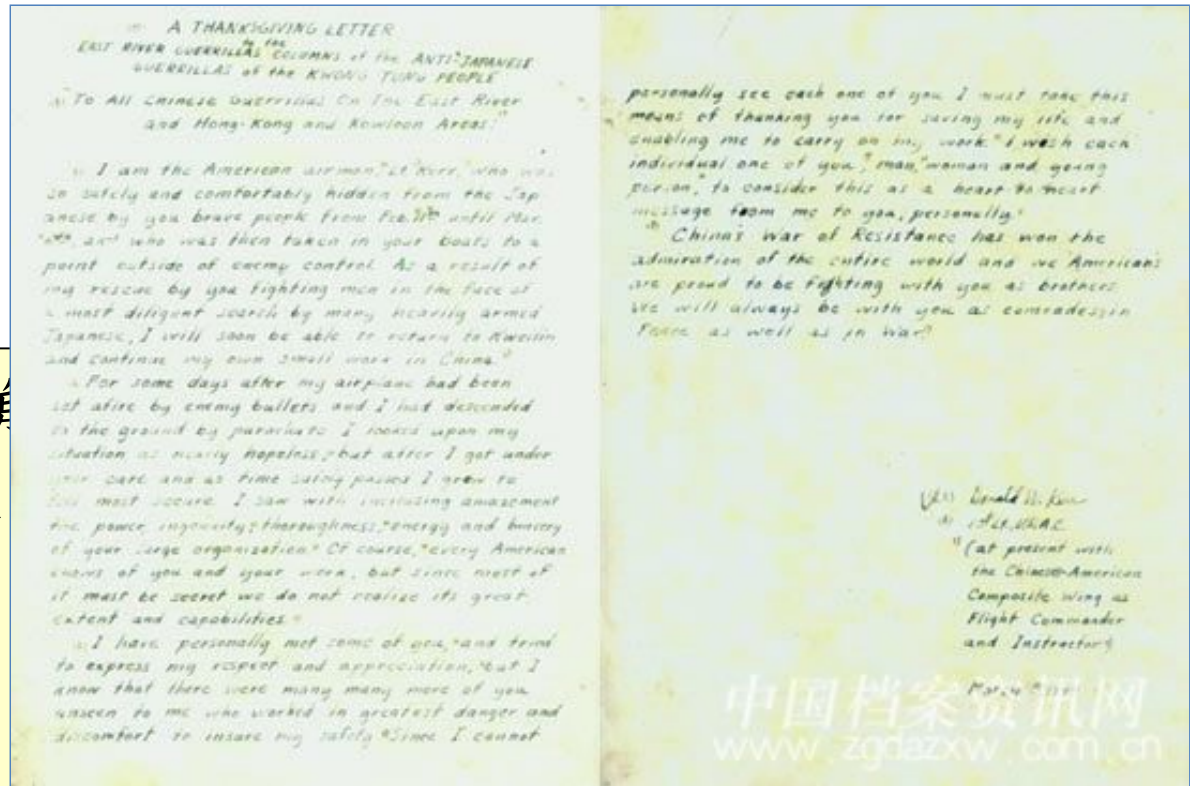 A THANKSGIVING LETTER
to the
EAST RIVER GUERRILLAS COLUMNS of the ANTI-JAPANESE
GUERRILLAS of the KWONG TUNG PEOPLE
"To All Chinese Guerrillas On The East River
and Hong-Kong and Kowloon Areas:"
I am the American airman, "Lt Kerr," who was
so safely and comfortably hidden from the Jap
anese by you brave people from Feb. until Mar.
and who was then taken in your boats to a
point outside of enemy control. As a result of
my rescue by you fighting men in the face of
a most diligent search by many heavily armed
Japanese, I will soon be able to return to Kweilin
and continue my own small work in China."
For some days after my airplane had been
set afire by enemy bullets and I had descended
to the ground by parachute I looked upon my
situation as nearly hopeless; but after I got under
your care and as time safely passed I grew to
feel most secure. I saw with increasing amazement
the power, ingenuity, thoroughness, energy and bravery
of your large organization." Of course, "every American
knows of you and your work, but since most of
it must be secret we do not realize its great
extent and capabilities."
I have personally met some of you, "and tried
to express my respect and appreciation, "but I
know that there were many many more of you
unseen to me who worked in greatest danger and
discomfort to insure my safety. "Since I cannot
personally see each one of you I must take this
means of thanking you for saving my life and
enabling me to carry on my work. "I wish each
individual one of you, "man, "woman and young
person, "to consider this as a heart to heart
message from me to you, personally."
China's War of Resistance has won the
admiration of the entire world and we Americans
are proud to be fighting with you as brothers
We will always be with you as comrades in
Peace as well as in War."
Donald W. Kerr
1st Lt, USAC
"(at present with
the Chinese-American
Composite Wing as
Flight Commander
and Instructor)
March
中国档案资讯网
www.zgdazxw.com.cn